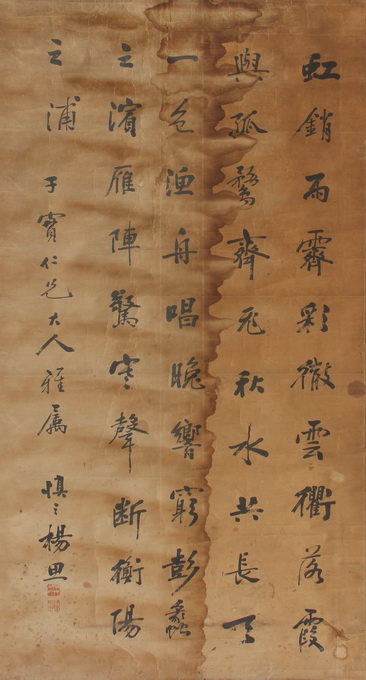 虹銷雨霽彩徹雲衢落霞
與孤鶩齊飛秋水共長天
一色漁舟唱晚響窮彭蠡
之濱雁陣驚寒聲斷衡陽
之浦
于賓仁兄大人雅屬
慎之楊